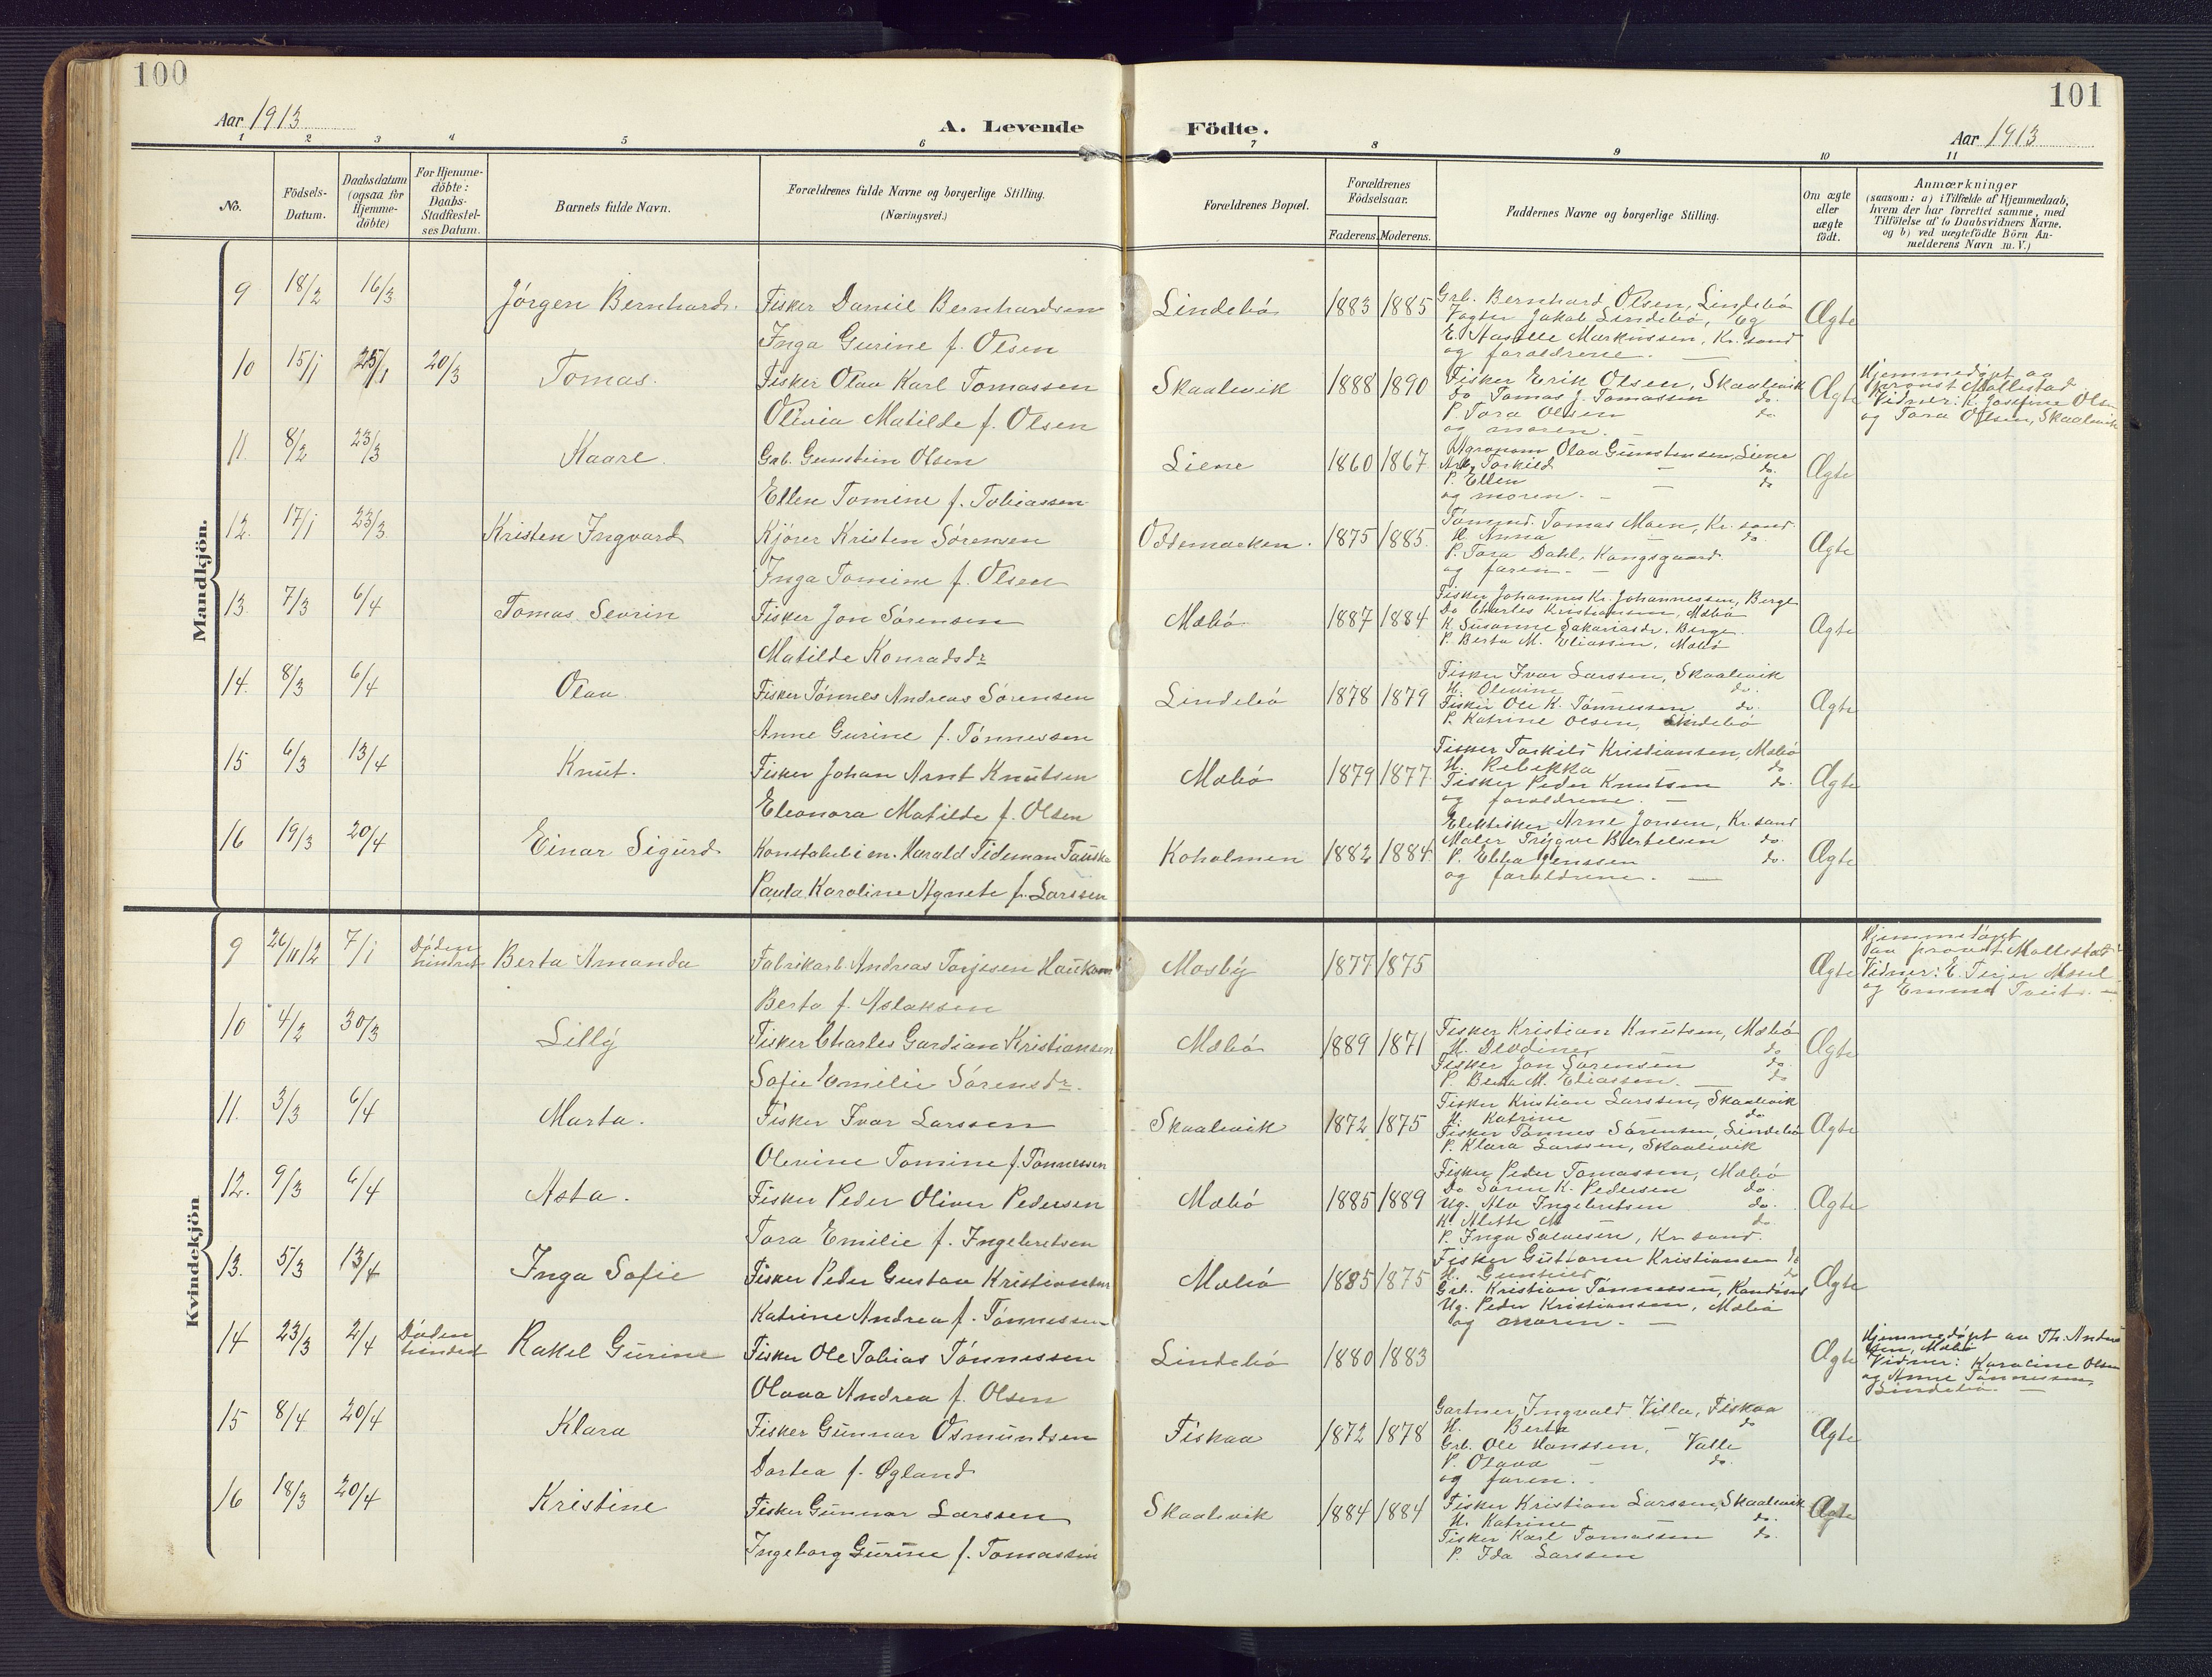 100
101
Aar 1913
A. Levende Födte.
Aar 1913
1 2 3 4 5 6 7 8 9 10 11
No.
Födsels-Datum.
Daabsdatum (ogsaa for Hjemme-döbte)
For Hjemme-döbte: Daabs-Stadfæstel-ses Datum.
Barnets fulde Navn.
Forældrenes fulde Navne og borgerlige Stilling.
(Næringsvei.)
Forældrenes Bopæl.
Forældrenes Födselsaar.
Faderens. Moderens.
Faddernes Navne og borgerlige Stilling.
Om ægte eller uægte födt.
Anmærkninger
(saasom: a) i Tilfælde af Hjemmedaab,
hvem der har forrettet samme, med
Tilföielse af to Daabsvidners Navne,
og b) ved uægtefödte Börn An-
melderens Navn m. V.)
Mandkjön.
9 18/2 16/3 Jörgen Bernhard. Fisker Daniel Bernhardsen
Inga Gurine f. Olsen
Lindebö 1883 1885
Grb. Bernhard Olsen, Lindebö
Jakob Lindebö, og
Markussen, Kr.sand
og forældrene.
Ægte
10 15/1 25/1 20/3 Tomas. Fisker Olav Karl Tomassen
Olivia Matilde f. Olsen
Skaalevik 1888 1890
Fisker Erik Olsen, Skaalevik
Do Tomas J. Tomassen do.
P. Tora Olsen do.
og moren.
Ægte
Hjemmedöpt av
provst Mollestad
Vidner: K. Josefine Olsen
og Tora Olsen, Skaalevik
11. 8/2 23/3 Kaare. Grb. Gunstein Olsen
Ellen Tomine f. Tobiassen
Liene 1860 1867
Agronom Olav Gunstensen, Liene
Arb. Torkild — do.
P. Ellen — do
og moren. —
Ægte
12. 17/1 23/3 Kristen Ingvard Kjörer Kristen Sörensen
Inga Tomine f. Olsen
Oddemarken. 1875 1885.
Tömmd. Tomas Moen, Kr.sand
H. Anna — do.
P. Tora Dahl, Kongsgaard.
og faren. —
Ægte
13. 7/3 6/4 Tomas Sevrin Fisker Jon Sörensen
Matilde Konradsdr
Mæbö 1887 1884
Fisker Johannes Kr. Johannessen, Berge
Do Charles Kristiansen, Mæbö
K. Susanne Sakariasdr. Berge.
P. Berta M. Eliassen, Mæbö
Ægte
14. 8/3 6/4 Olav Fisker Tönnes Andreas Sörensen
Anne Gurine f. Tönnessen
Lindebö 1878 1879
Fisker Ivar Larssen, Skaalevik
H. Olevine do.
Fisker Ole K. Tönnessen do.
P. Katrine Olsen, Lindebö
Ægte
15 6/3 13/4 Knut. Fisker Johan Arnt Knutsen
Eleonora Matilde f. Olsen
Mæbö 1879 1877
Fisker Torkild Kristiansen, Mæbö
H. Rebekka do
Fisker Peder Knutsen do.
og forældrene. —
Ægte
16 19/3 20/4 Einar Sigurd Harald Tideman
Paula Karoline Agnete f. Larssen
Koholmen 1882 1884.
Elektriker Arne Jonsen, Kr.sand
Maler Trygve Bertelsen do.
P. Ebba Jenssen do.
og forældrene. —
Ægte
Kvindekjön
9 26/11 12 7/1 Döden hindret Berta Amanda Fabrikarb. Andreas Torjesen Haukom
Berta f. Aslaksen
Mosby 1877 1875
Ægte
Hjemmedöpt
av provst Mollestad
Vidner: E. Terjer
og
10 4/2 30/3 Lilly Fisker Charles Gardian Kristiansen
Sofie Emilie Sörensdr.
Mæbö 1889 1871
Fisker Kristian Knutsen, Mæbö
H. do
Fisker Jon Sörensen do.
P. Berta M. Eliassen. — do
Ægte
11. 3/3 6/4 Marta. Fisker Ivar Larssen
Olevine Tomine f. Tönnessen
Skaalevik 1872 1875
Fisker Kristian Larssen, Skaalevik
H. Katrine do.
Fisker Tönnes Sörensen, Lindebö
P. Klara Larssen, Skaalevik
Ægte
12. 9/3 6/4 Asta. Fisker Peder Oliver Pedersen
Tora Emilie f. Ingebretsen
Mæbö 1885 1889
Fisker Peder Tomassen, Mæbö
Do Sören K. Pedersen do.
Ug. Alv Ingebretsen do.
K. Alette M do
P. Inga Salvesen, Kr.sand.
Ægte
13. 5/3 13/4 Inga Sofie Fisker Peder Gustav Kristiansen
Katrine Andrea f. Tönnessen
Mæbö 1885 1875
Fisker Guttorm Kristiansen do
H. Gunhild do
Grb. Kristian Tönnessen, Randöen
Ug. Peder Kristiansen, Mæbö
og moren. —
Ægte
14 23/3 2/4 Döden hindret Rakel Gurine Fisker Ole Tobias Tönnessen
Olava Andrea f. Olsen
Lindebö 1880 1883
Ægte
Hjemmedöpt av Th. Ander
sen, Mæbö
Vidner: Karoline Olsen
og Anne Tönnessen,
Lindebö. —
15 8/4 20/4 Klara Fisker Gunnar Osmundsen
Dortea f. Øgland
Fiskaa 1872 1878
Gartner Ingvald Villa, Fiskaa
H. Berta — do
Grb. Ole Hanssen, Valle
P. Olava — do.
og faren.
Ægte
16 18/3 20/4 Kristine Fisker Gunnar Larssen
Ingeborg Gurine f. Tomassen
Skaalevik 1884 1884
Fisker Kristian Larssen, Skaalevik
H. Katrine do.
Fisker Karl Tomassen do.
P. Ida Larssen
Ægte